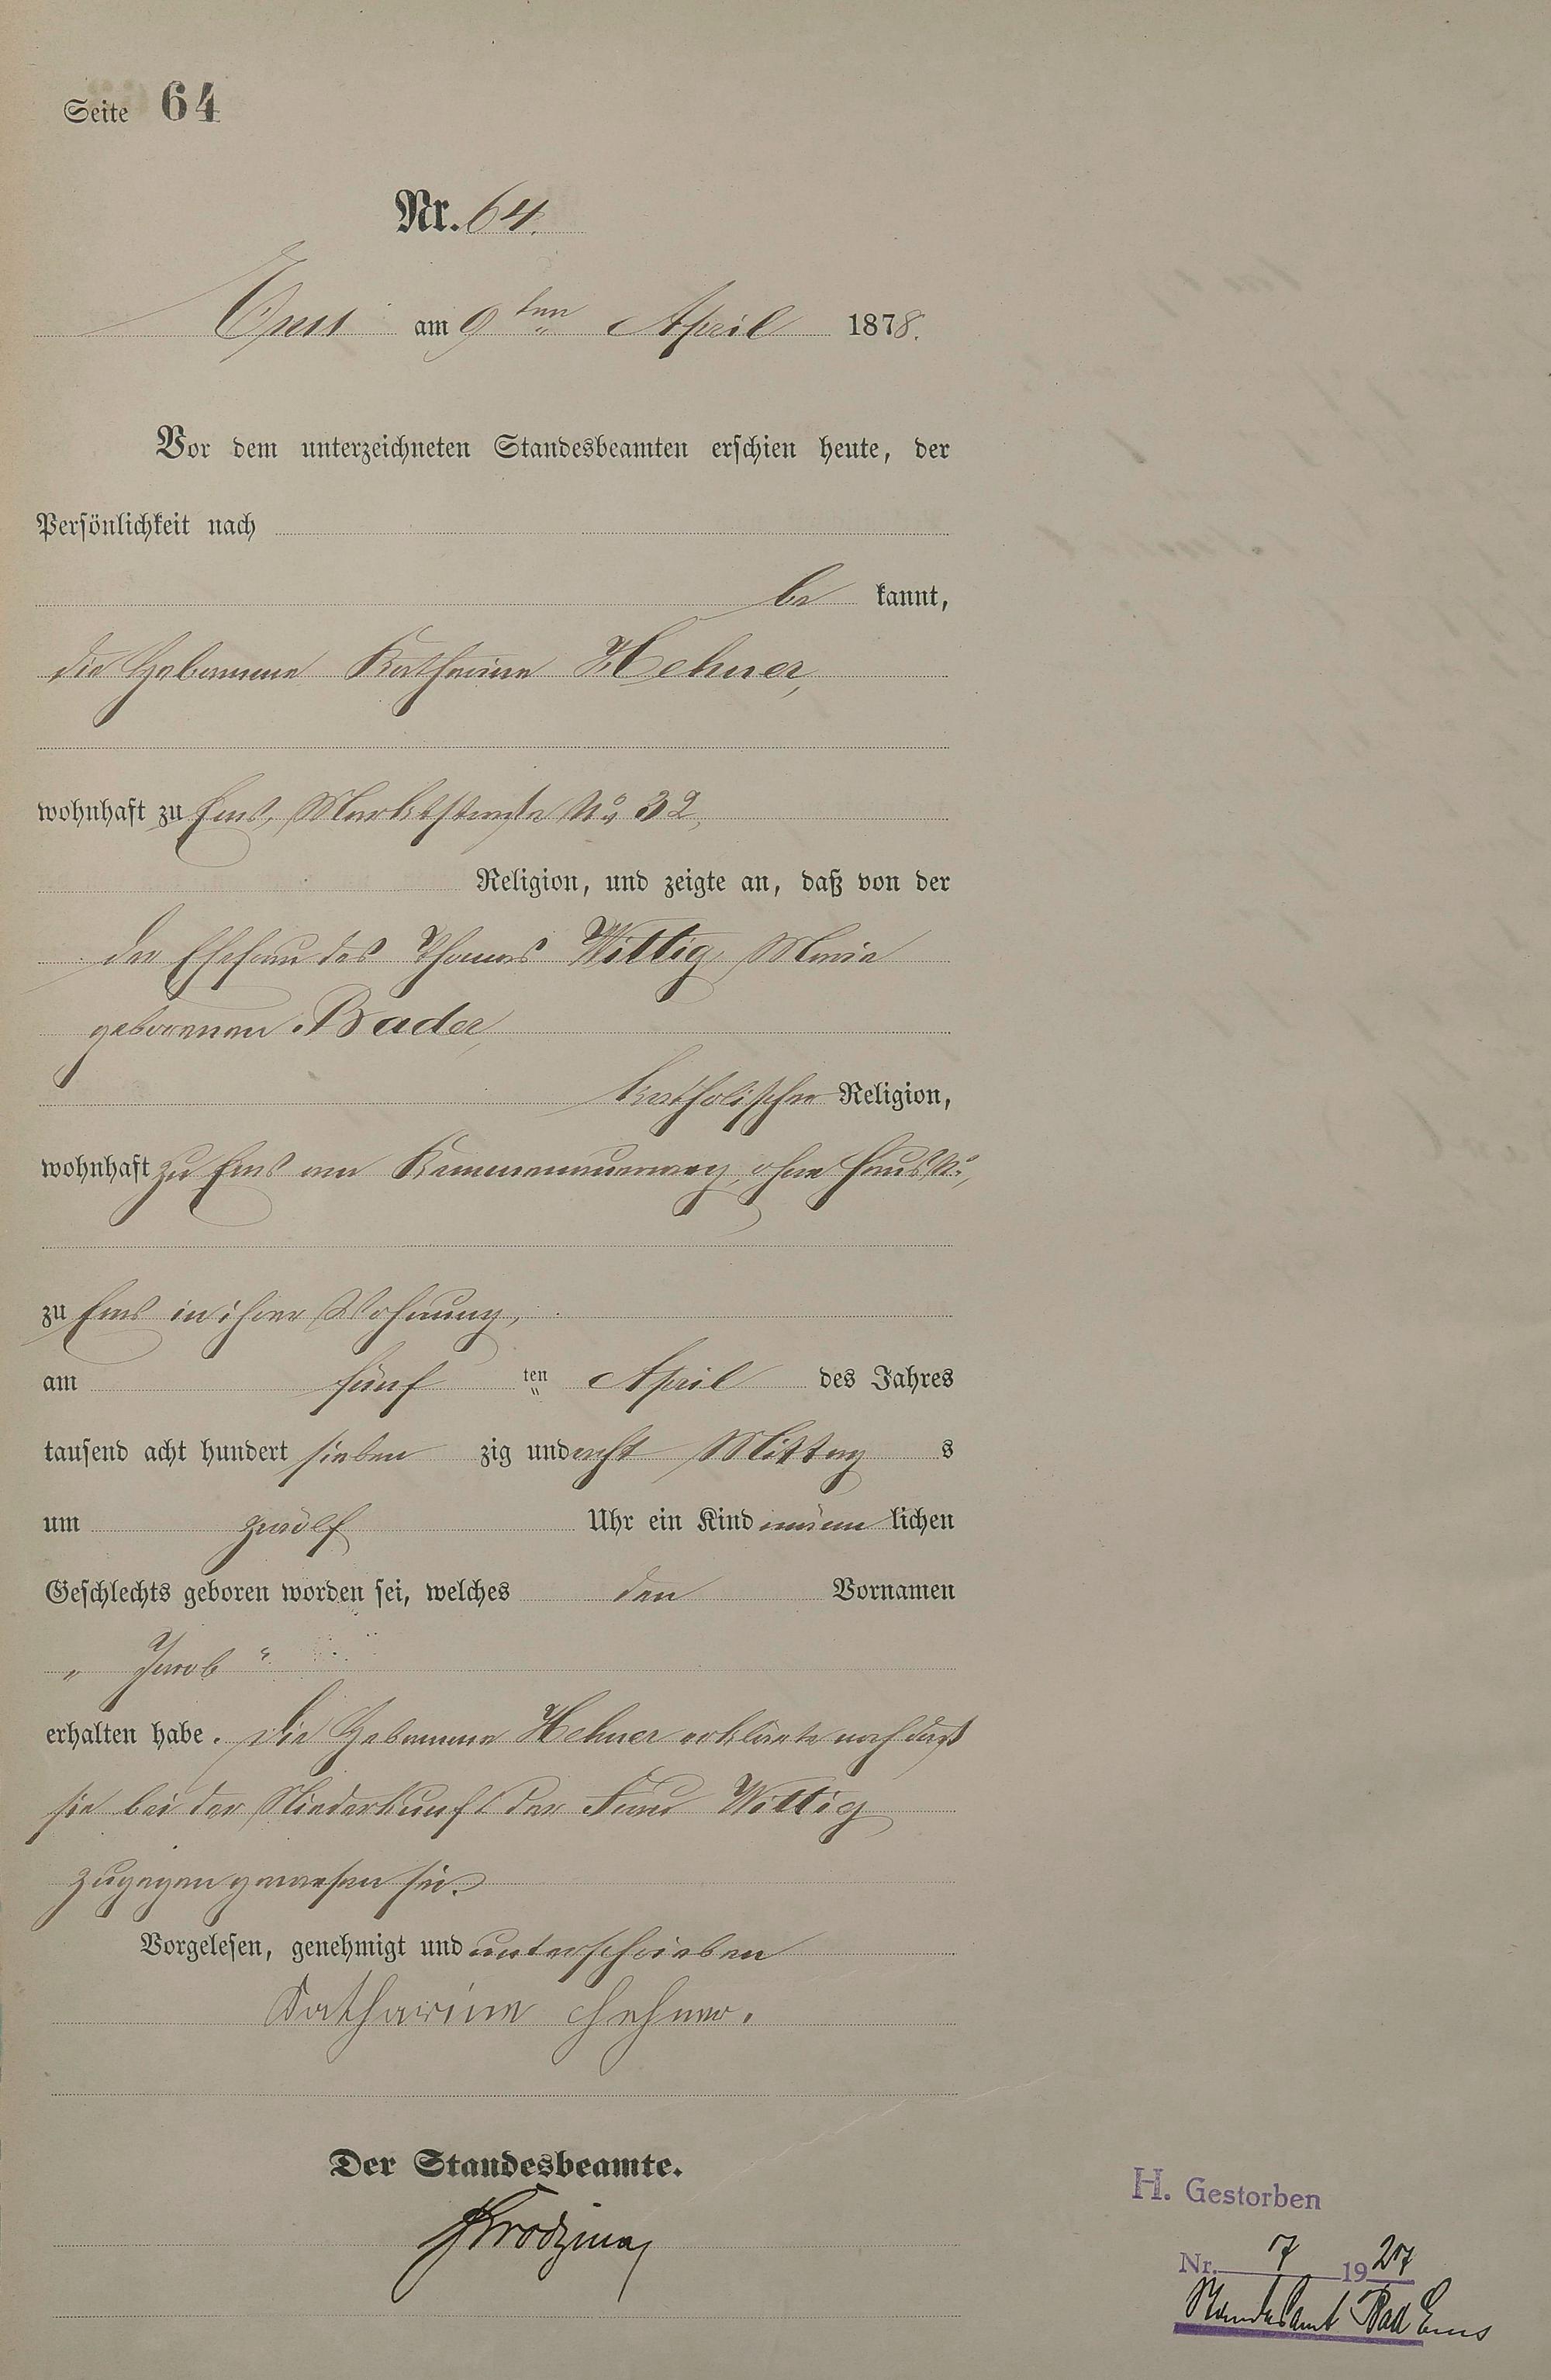 Seite 64
Nr. 64.
Ems am 9ten April 1878.
Vor dem unterzeichneten Standesbeamten erschien heute, der
Persönlichkeit nach
be kannt,
die Hebamme Katharina Hehner,
wohnhaft zu Ems, Marktstraße No 32,
Religion, und zeigte an, daß von der
der Ehefrau des Thomas Wittig, Maria
geborenen Bader,
katholischer Religion,
wohnhaft zu Ems am ohne Haus No,
zu Ems in ihrer Wohnung,
am fünf ten April des Jahres
tausend acht hundert sieben zig und acht Mittag s
um zwölf Uhr ein Kind männ lichen
Geschlechts geboren worden sei, welches den Vornamen
„ Jacob “
erhalten habe. Die Hebamme Hehner erklärte noch daß
sie bei der Niederkunft der Frau Wittig
zugegen gewesen sei.
Vorgelesen, genehmigt und unterschrieben
Katharina Hehner.
Der Standesbeamte.
H. Gestorben
Nr. 7 1927
Standesamt Bad Ems